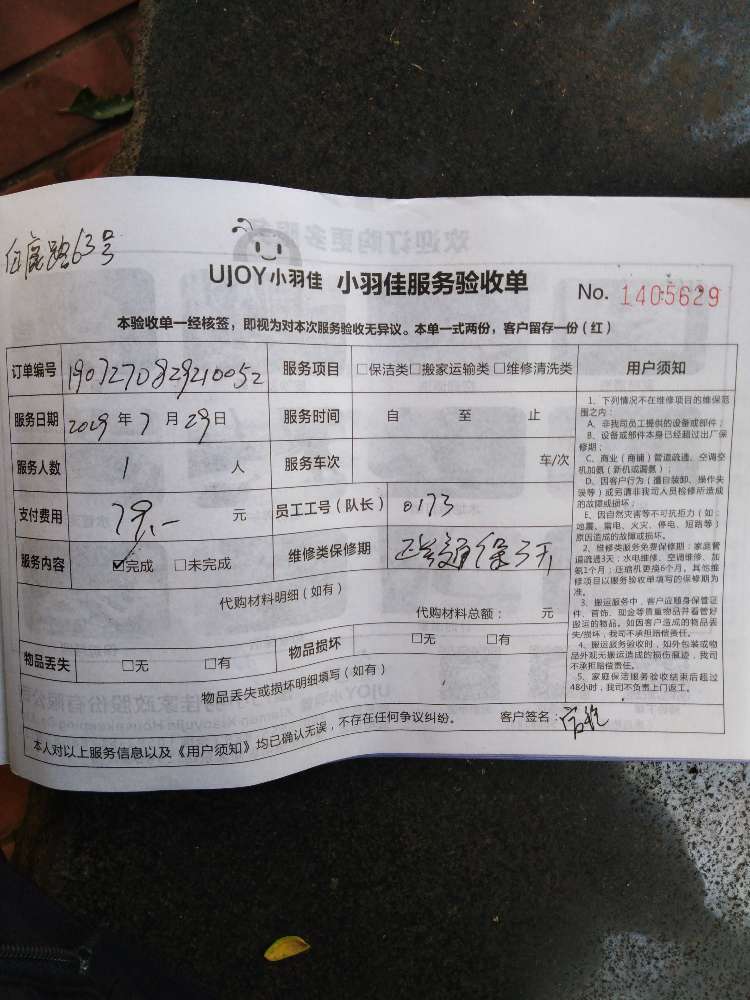 路63号
UJOY小羽佳 小羽佳服务验收单 No. 1405629
本验收单一经核签，即视为对本次服务验收无异议。本单一式两份，客户留存一份（红）
订单编号 1907270829210052 服务项目 □保洁类□搬家运输类□维修清洗类 用户须知
服务日期 2019 年 7 月 29 日 服务时间 自 至 止
服务人数 1 人 服务车次 车/次
支付费用 79.- 元 员工工号（队长） 0173
服务内容 ☑完成 □未完成 维修类保修期 通保3天
代购材料明细（如有）
代购材料总额： 元
物品丢失 □无 □有 物品损坏 □无 □有
物品丢失或损坏明细填写（如有）
本人对以上服务信息以及《用户须知》均已确认无误，不存在任何争议纠纷。 客户签名：
1、下列情况不在维修项目的维保范
围之内：
A、非我司员工提供的设备或部件；
B、设备或部件本身已经超过出厂保
修期；
C、商业（商铺）管道疏通、空调空
机加氨（新机或漏氨）；
D、因客户行为（擅自装卸、操作失
误等）或另请非我司人员检修所造成
的故障或损坏；
E、因自然灾害等不可抗拒力（如：
地震、雷电、火灾、停电、短路等）
原因造成的故障或损坏。
2、维修类服务免费保修期：家庭管
道疏通3天；水电维修、空调维修、加
氨1个月；压缩机更换6个月，其他维
修项目以服务验收单填写的保修期为
准。
3、搬运服务中，客户应随身保管证
件、首饰、现金等贵重物品并看管好
搬运的物品。如因客户造成的物品丢
失/损坏，我司不承担赔偿责任。
4、搬运服务验收时，如外包装或物
品外观无搬运造成的损伤痕迹，我司
不承担赔偿责任。
5、家庭保洁服务验收结束后超过
48小时，我司不负责上门返工。